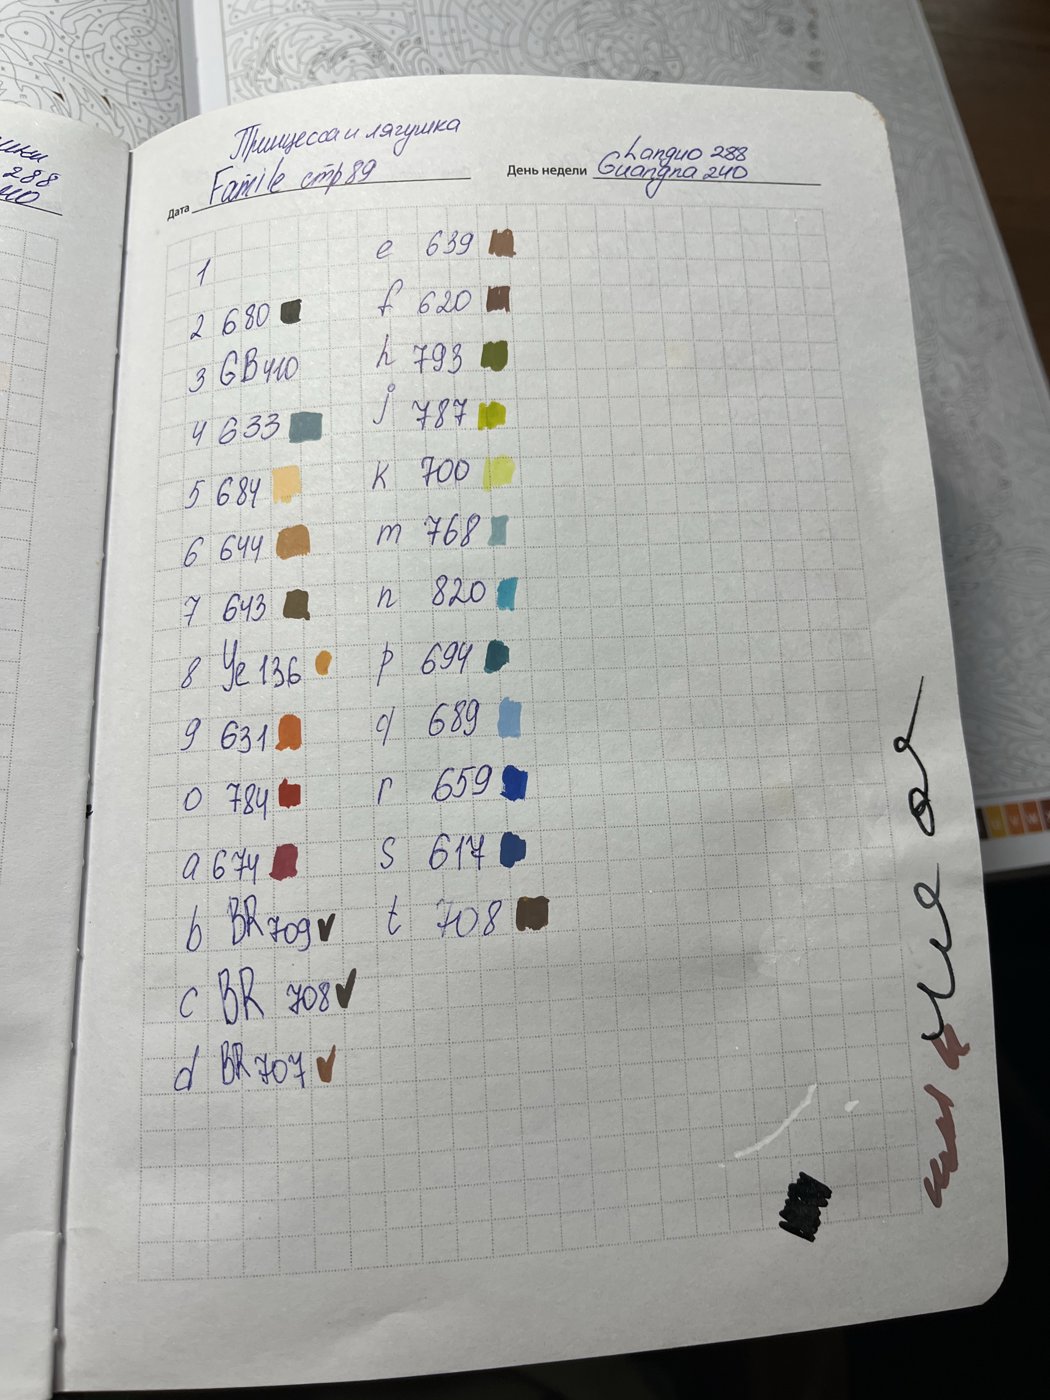 Принцесса и лягушка
Дата Famile стр 89
День недели Languo 288
Guangna 240
1
2 680
3 GB 410
4 633
5 684
6 644
7 643
8 Ye 136
9 631
0 784
a 674
b BR 709
c BR 708
d BR 707
e 639
f 620
h 793
j 787
k 700
m 768
n 820
p 694
q 689
r 659
s 617
t 708
288